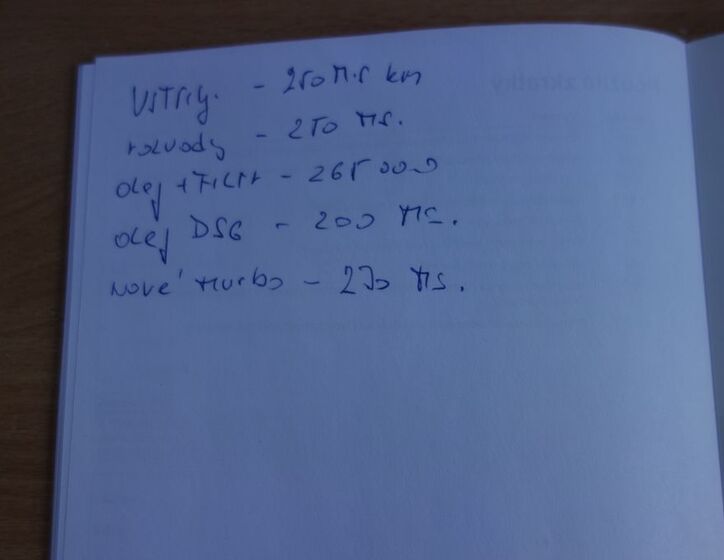 vstřiky. - 250 tis km
rozvody - 250 tis.
olej + filtr - 265 000
olej DSG - 200 tis.
nové turbo - 270 tis.